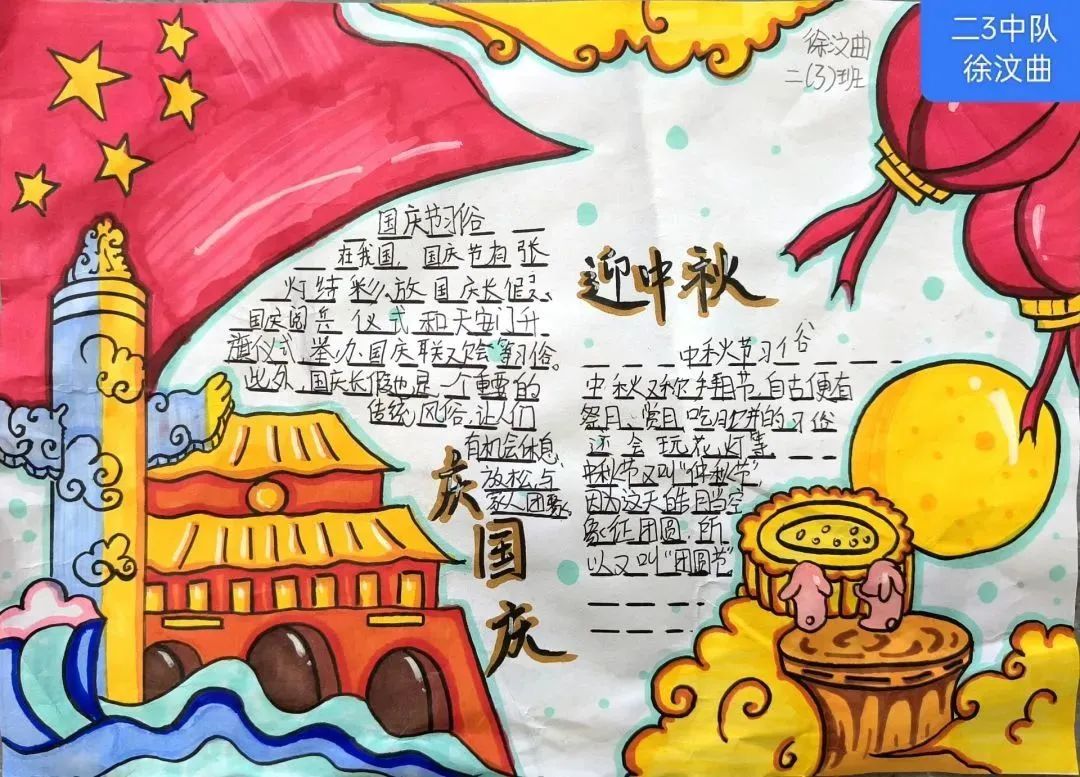 二3中队
徐汶曲
徐汶曲
二(3)班
国庆节习俗
在我国，国庆节有张
灯结彩、放国庆长假、
国庆阅兵仪式和天安门升
旗仪式、举办国庆联欢会等习俗。
此外,国庆长假也是一个重要的
传统风俗,让人们
有机会休息、
放松,与
家人团聚。
庆国庆
迎中秋
中秋节习俗
中秋又称节,自古便有
祭月、赏月、吃月饼的习俗
还会玩花灯等
中秋节又叫“仲秋节”,
因为这天皓月当空
象征团圆,所
以又叫“团圆节”